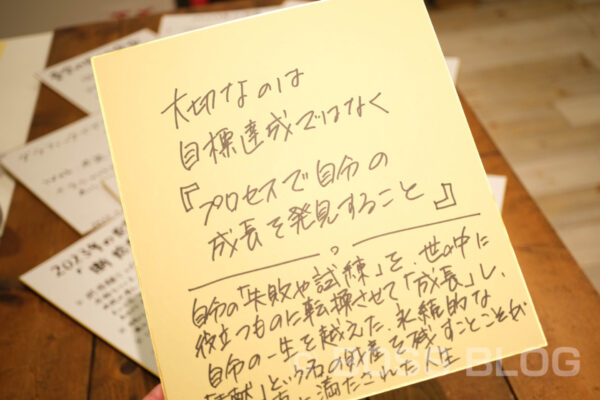 大切なのは
目標達成ではなく
『プロセスで自分の
成長を発見すること』
自分の「失敗や試練」を、世の中に
役立つものに転換させて「成長」し、
自分の一生を越えた、永続的な
「貢献」という名の財産を残すことことが
に満たされた人生
2023年の
BLOG